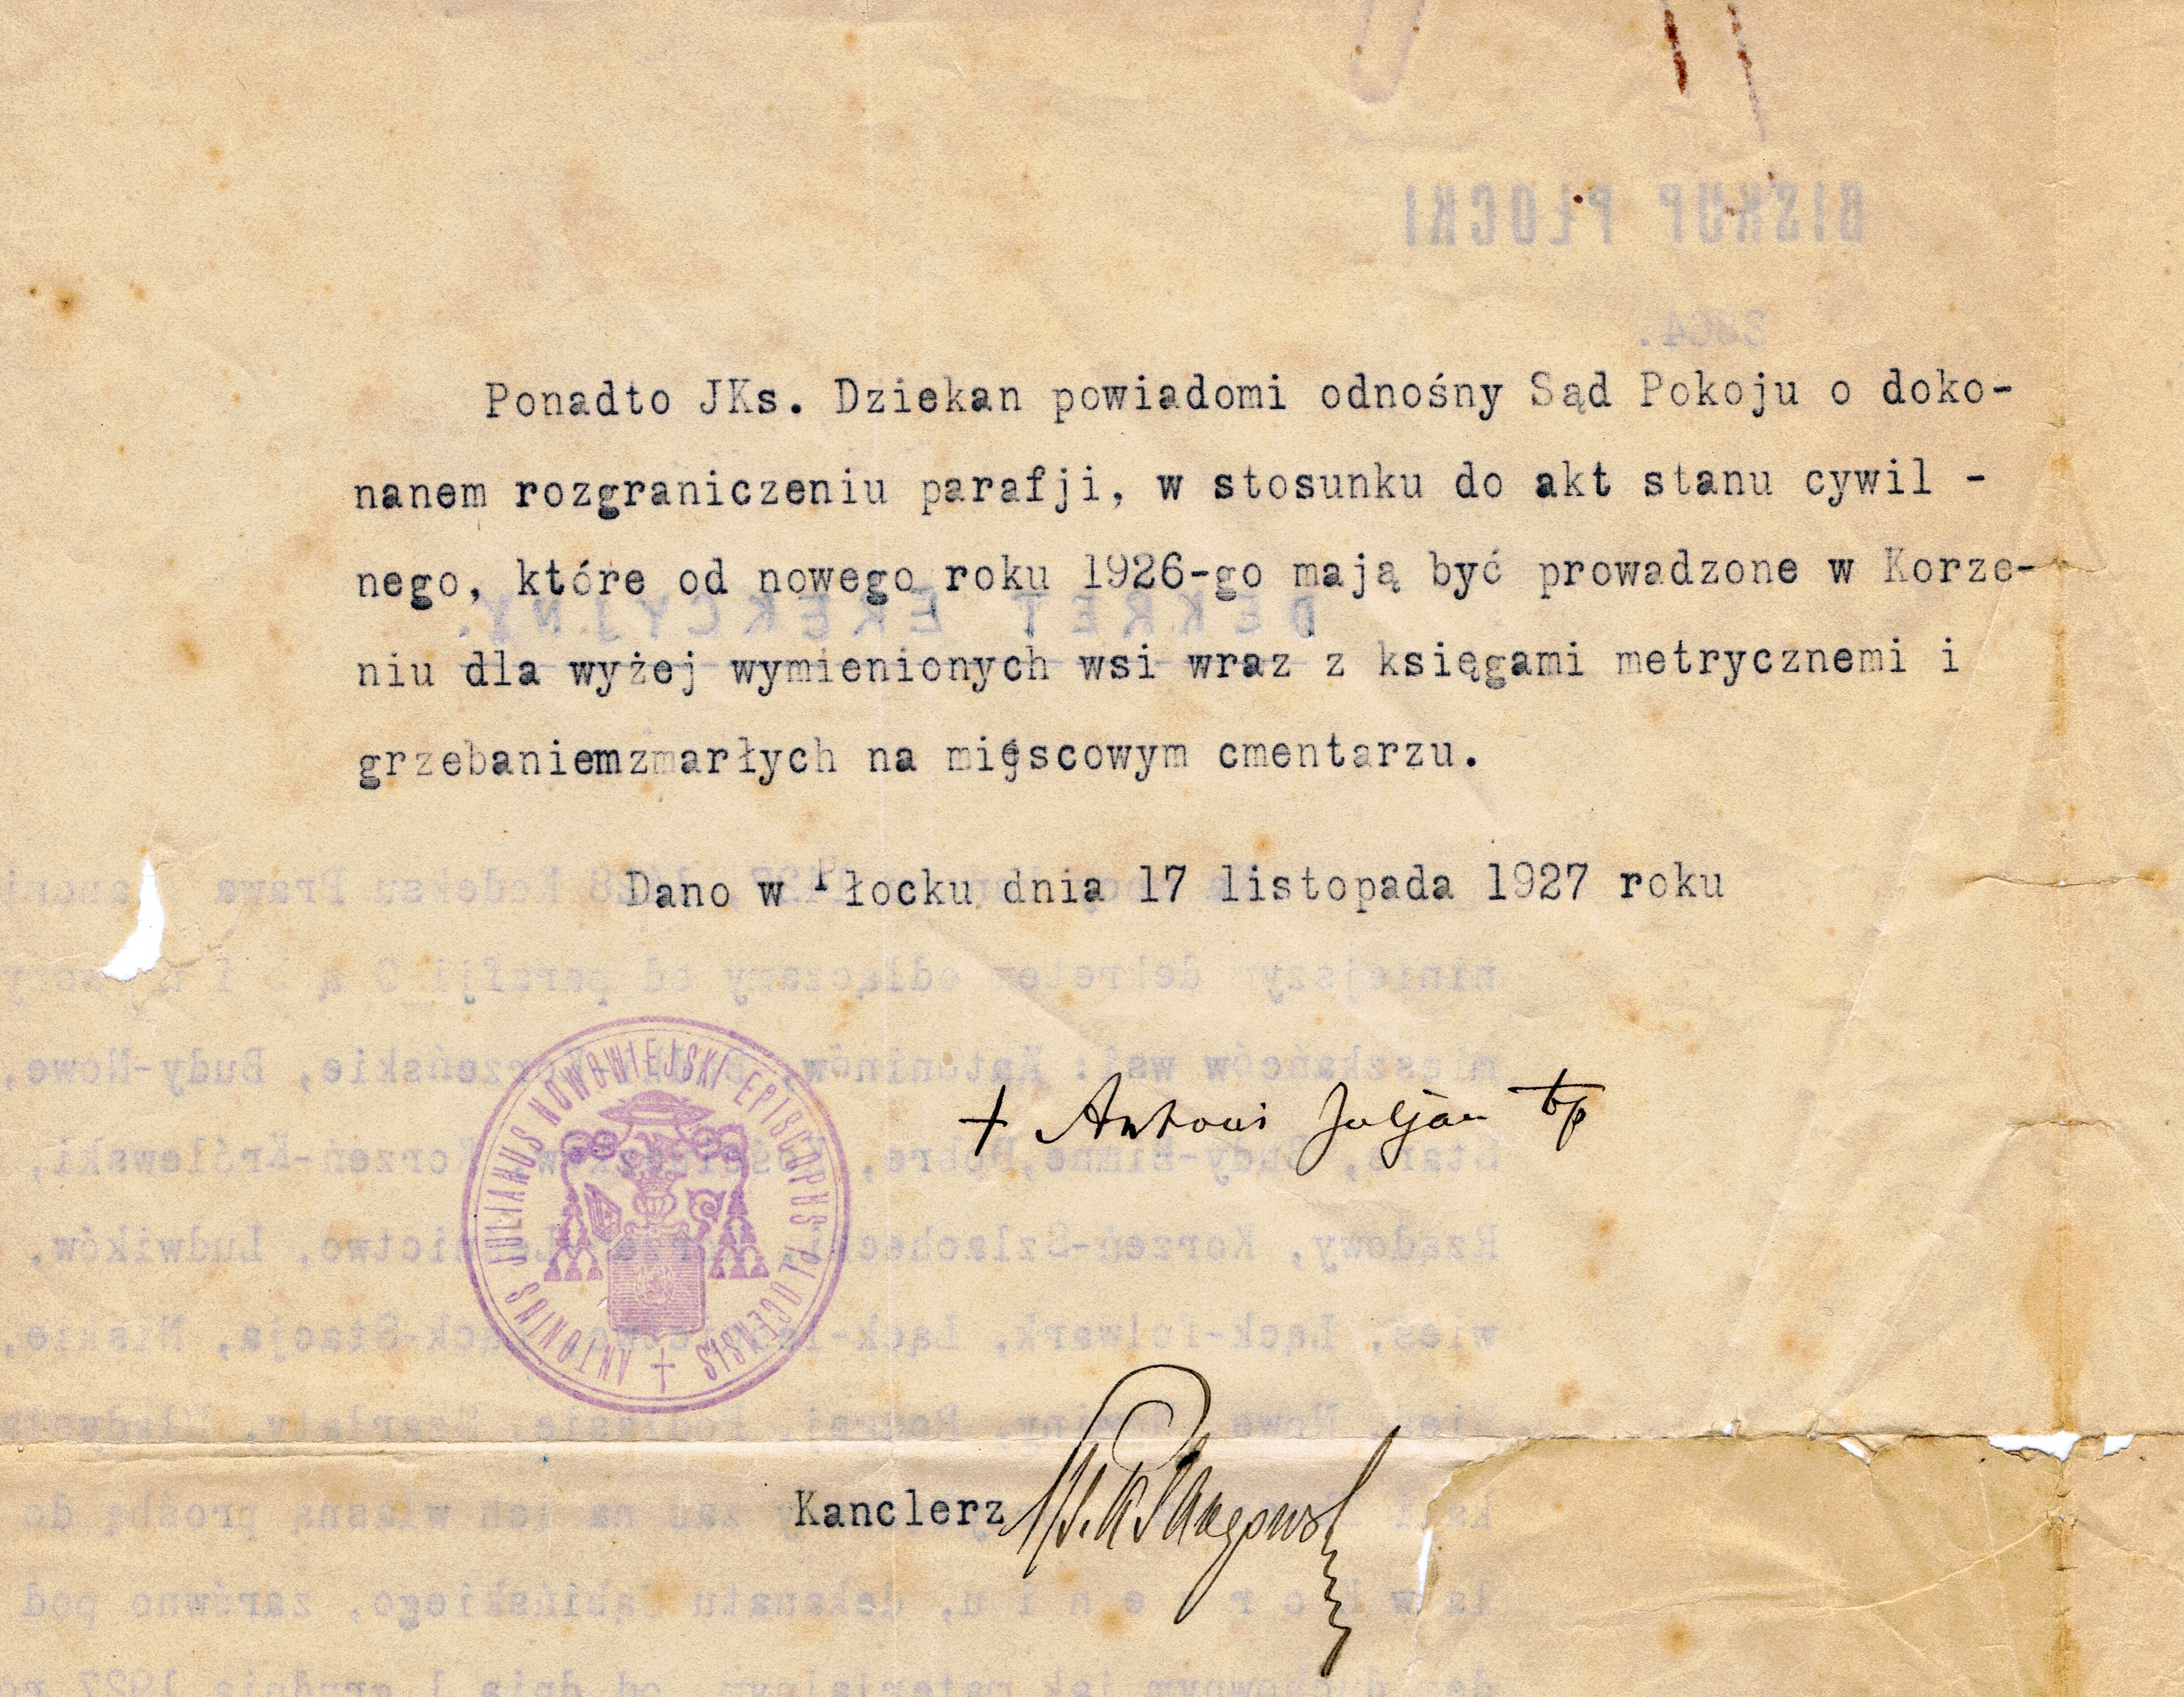 Ponadto JKs. Dziekan powiadomi odnośny Sąd Pokoju o doko-
nanem rozgraniczeniu parafji, w stosunku do akt stanu cywil -
nego, które od nowego roku 1926-go mają być prowadzone w Korze-
niu dla wyżej wymienionych wsi wraz z księgami metrycznemi i
grzebaniemzmarłych na miejscowym cmentarzu.
Dano w Płocku dnia 17 listopada 1927 roku
+ Antoni Juljan bp
ANTONIUS JULIANUS NOWOWIEJSKI EPISCOPUS PLOCENSIS
Kanclerz
BISKUP PŁOCKI
DEKRET EREKCYJNY.